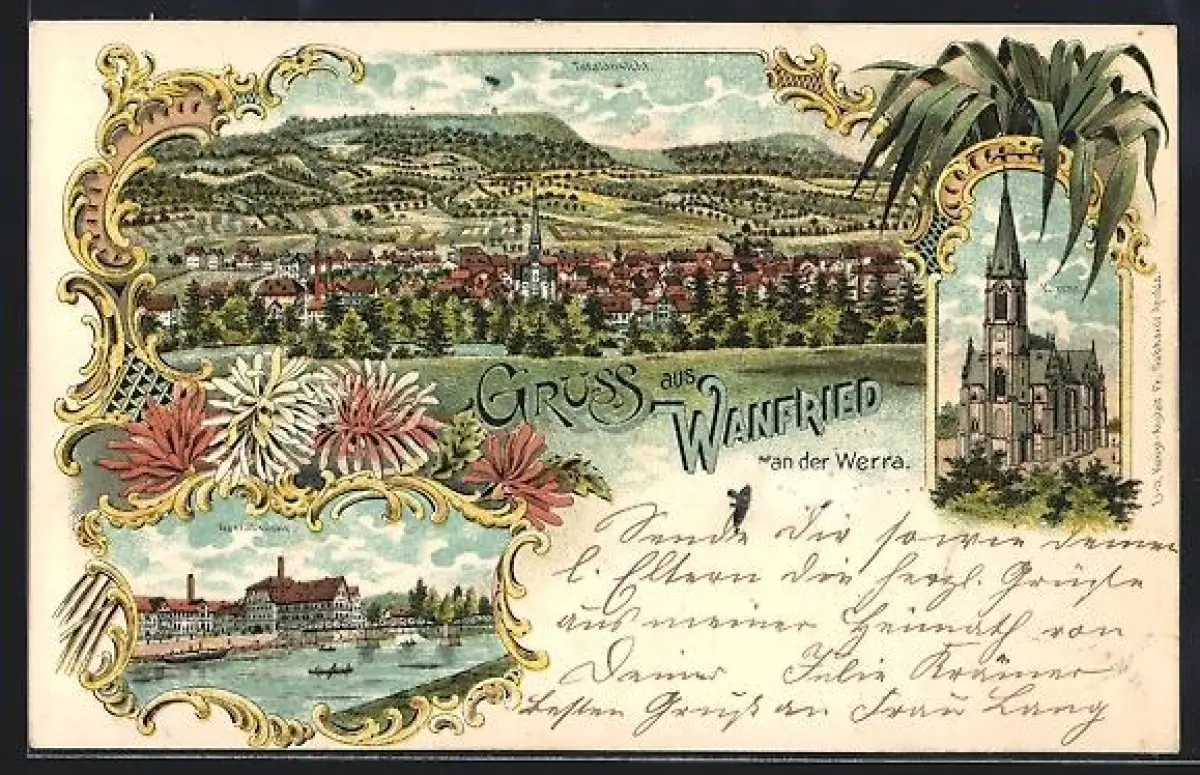 Totalansicht.
GRUSS aus
WANFRIED
an der Werra.
Kirche.
Sende Dir sowie deinen
l. Eltern die herzl. Grüße
aus meiner Heimath von
Deiner Julie Krämer
Besten Gruß an Frau Lang